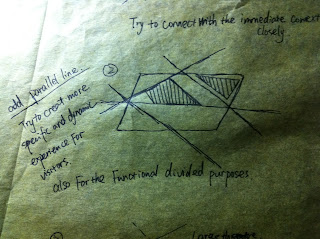 Try to connect with the immediate context
closely
②
add parallel line.
Try to creat more
specific and dynamic
experience for
visitors.
also for the functional divided purposes